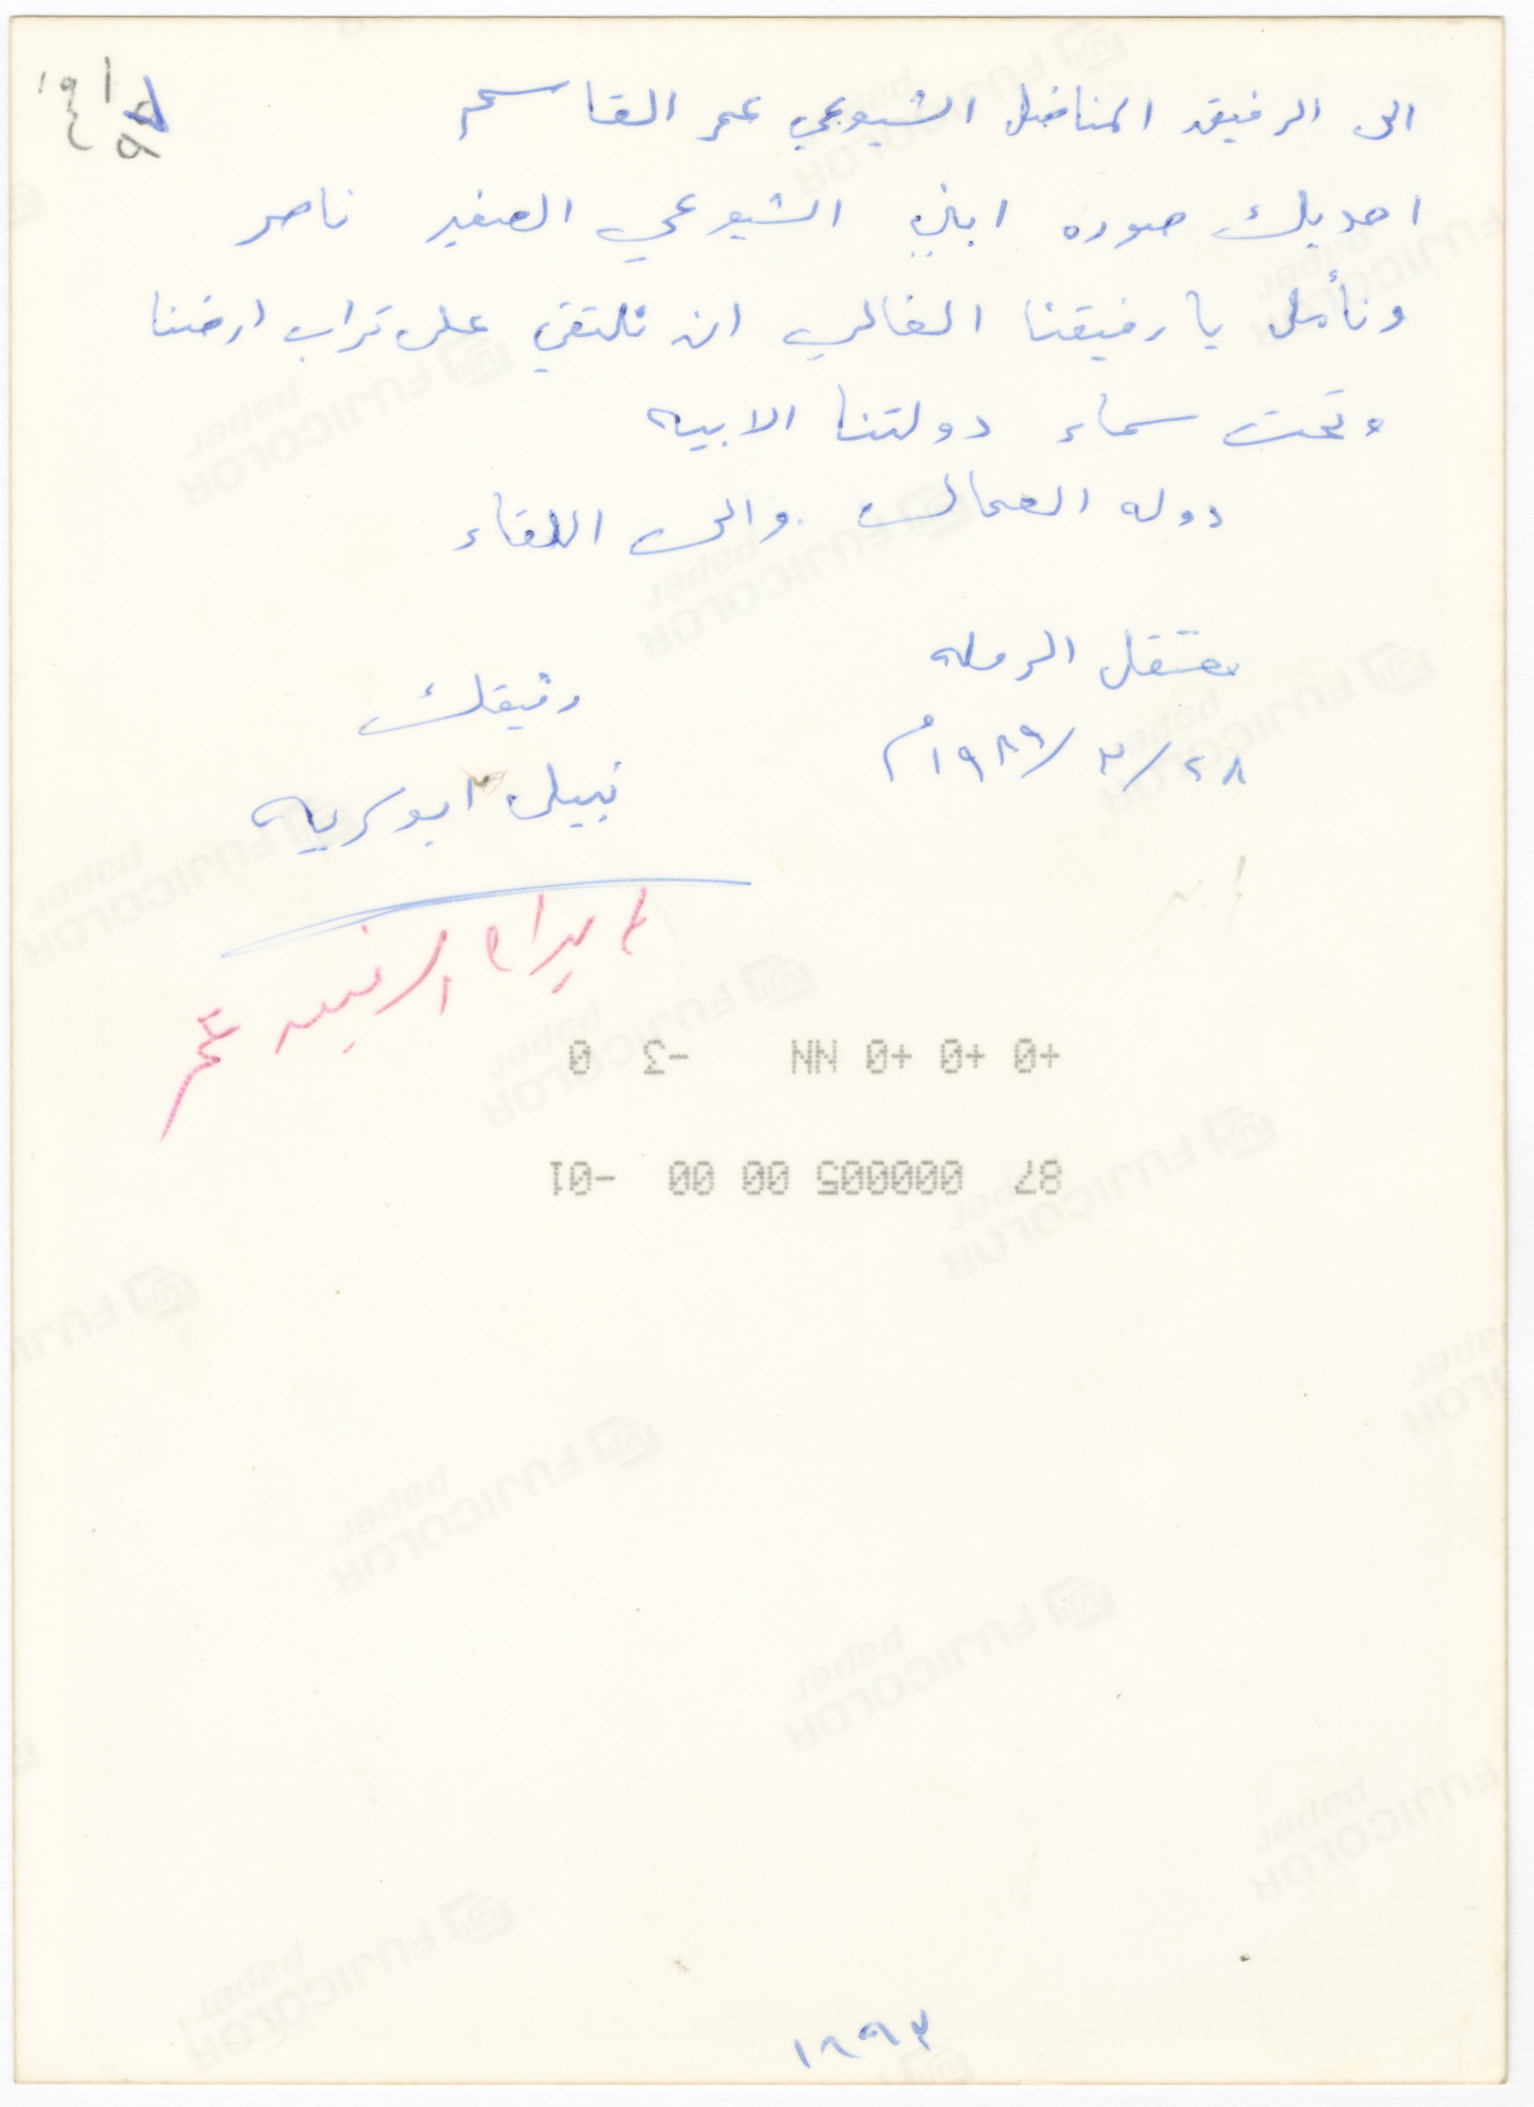 الى الرفيق المناضل الشيوعي عمر القاسم
اهديك صوره ابني الشيوعي الصغير ناصر
ونأمل يا رفيقنا الغالي ان نلتقي على تراب ارضنا
وتحت سماء دولتنا الابيه
دوله العمال والى اللقاء
معتقل الرمله
٢٨/٣/١٩٨٩م
رفيقك
نبيل ابو كريه
الرفيق عمر
+0 +0 +0 NN -3 0
87 000005 00 00 -01
FUJICOLOR paper
١٨٩٣